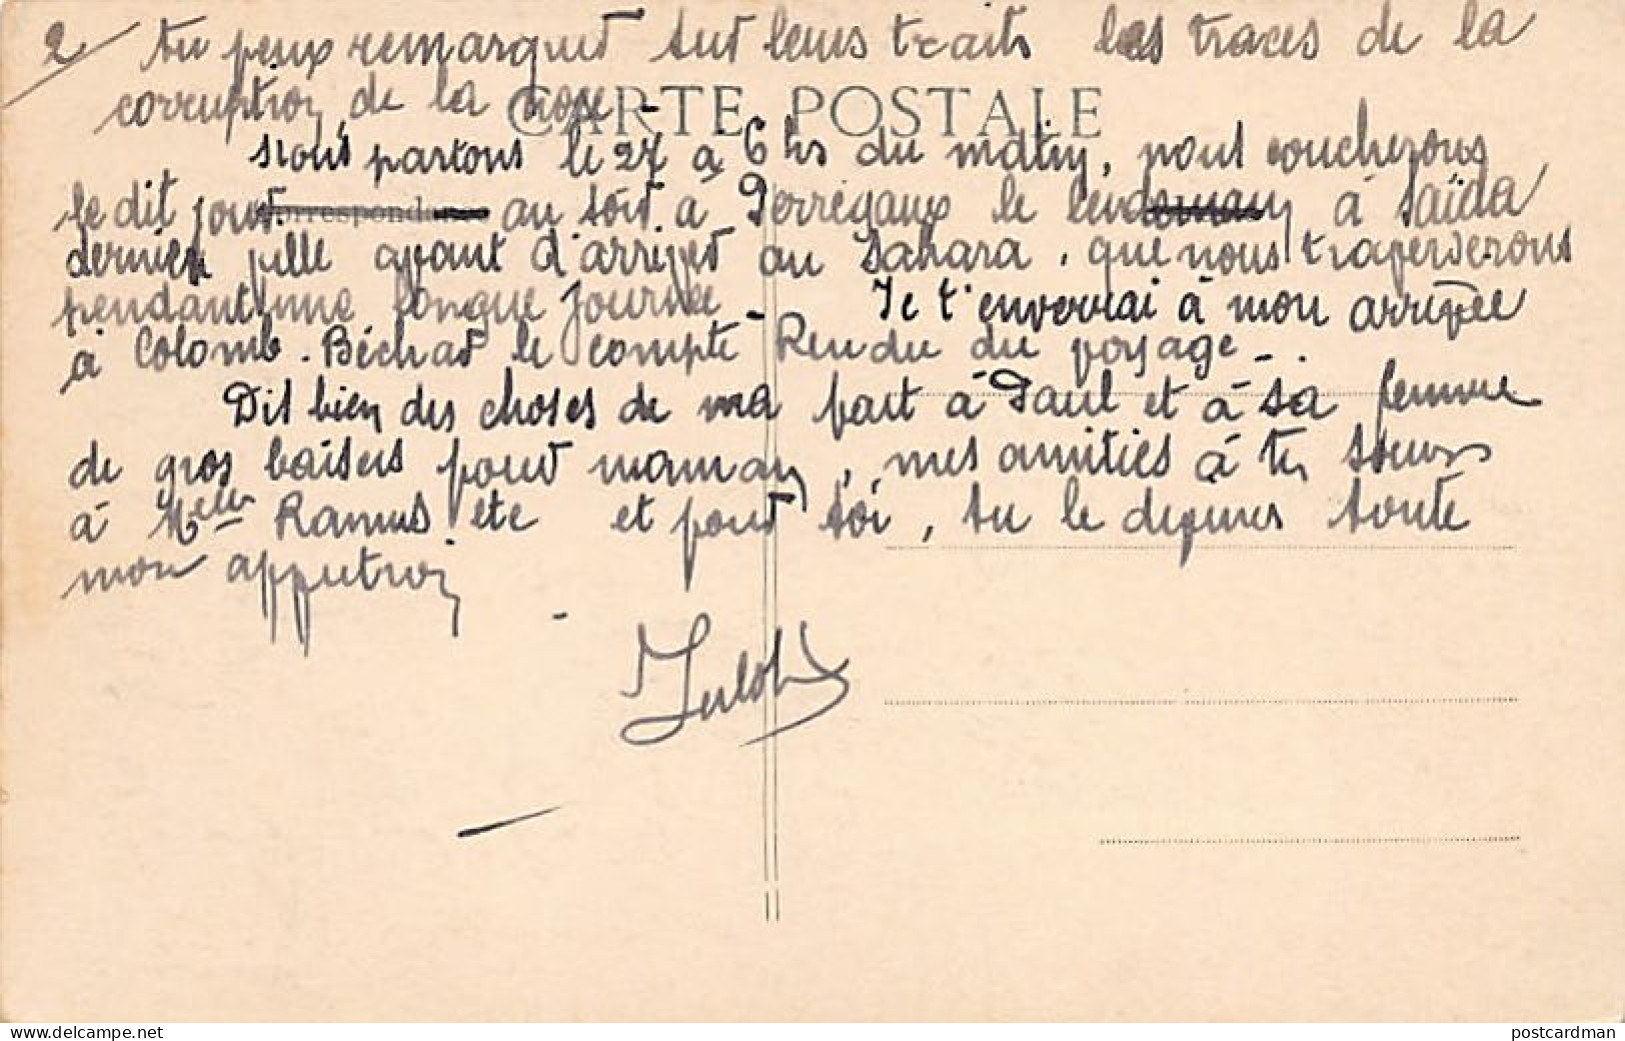 2/ tu peux remarquer sur leurs traits les traces de la
corruption de la noce -
CARTE POSTALE
Nous partons le 27 à 6 hrs du matin, nous coucherons
le dit jour au soir à Perrégaux le lendemain à Saïda
Correspondance
dernière ville avant d'arriver au Sahara, que nous traverserons
pendant une longue journée - Je t'enverrai à mon arrivée
à Colomb-Béchar le compte Rendu du voyage -
Dis bien des choses de ma part à Paul et à sa femme
de gros baisers pour maman, mes amitiés à tes soeurs
à Melle Ramus etc et pour toi, tu le devines toute
mon affection -
Julot
www.delcampe.net
postcardman